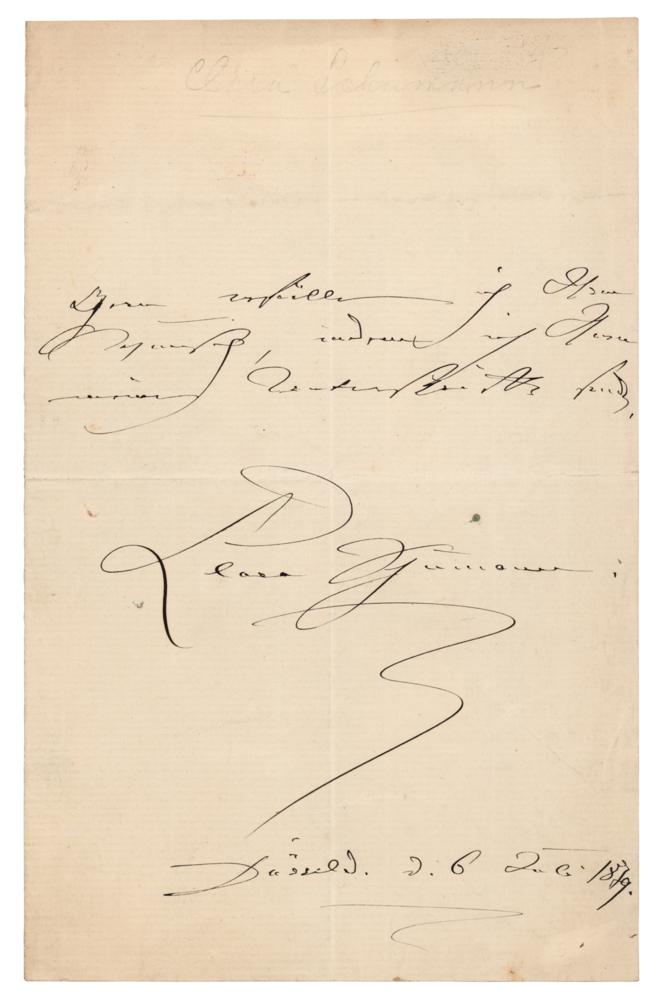 Clara Schumann
Gern erfülle ich Ihren
Wunsch, indem ich Ihnen
meine Unterschrift sende,
Clara Schumann.
Düsseld. d. 6 Juli 1879.